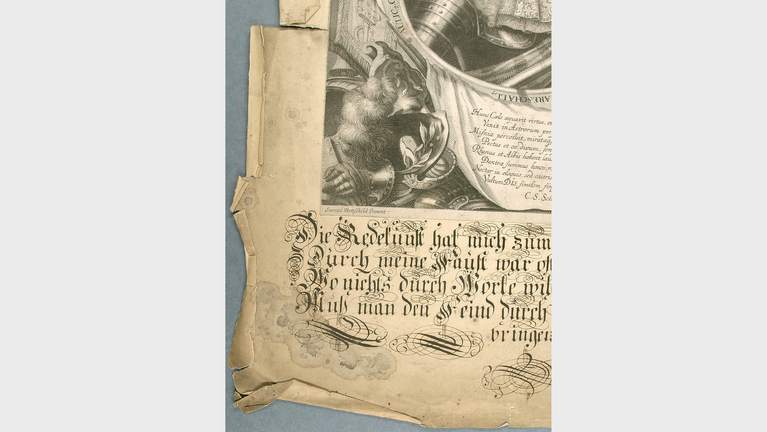 ARESCHALL
Hunc Cœlo æquavit virtus,
Vexit in Astrorum
Misnia percoluit,
Pectus et os divum,
Rhenus et Albis habent
Dextræ summus honos,
Nectar in eloquio, sed
Vultum Dis similem
C. S. Sch
Samuel Bottschild Pinxit
Die Redekunst hat mich zum
Durch meine Faust war
Wo nichts durch Worte wil
Muß man den Feind durch
bringen